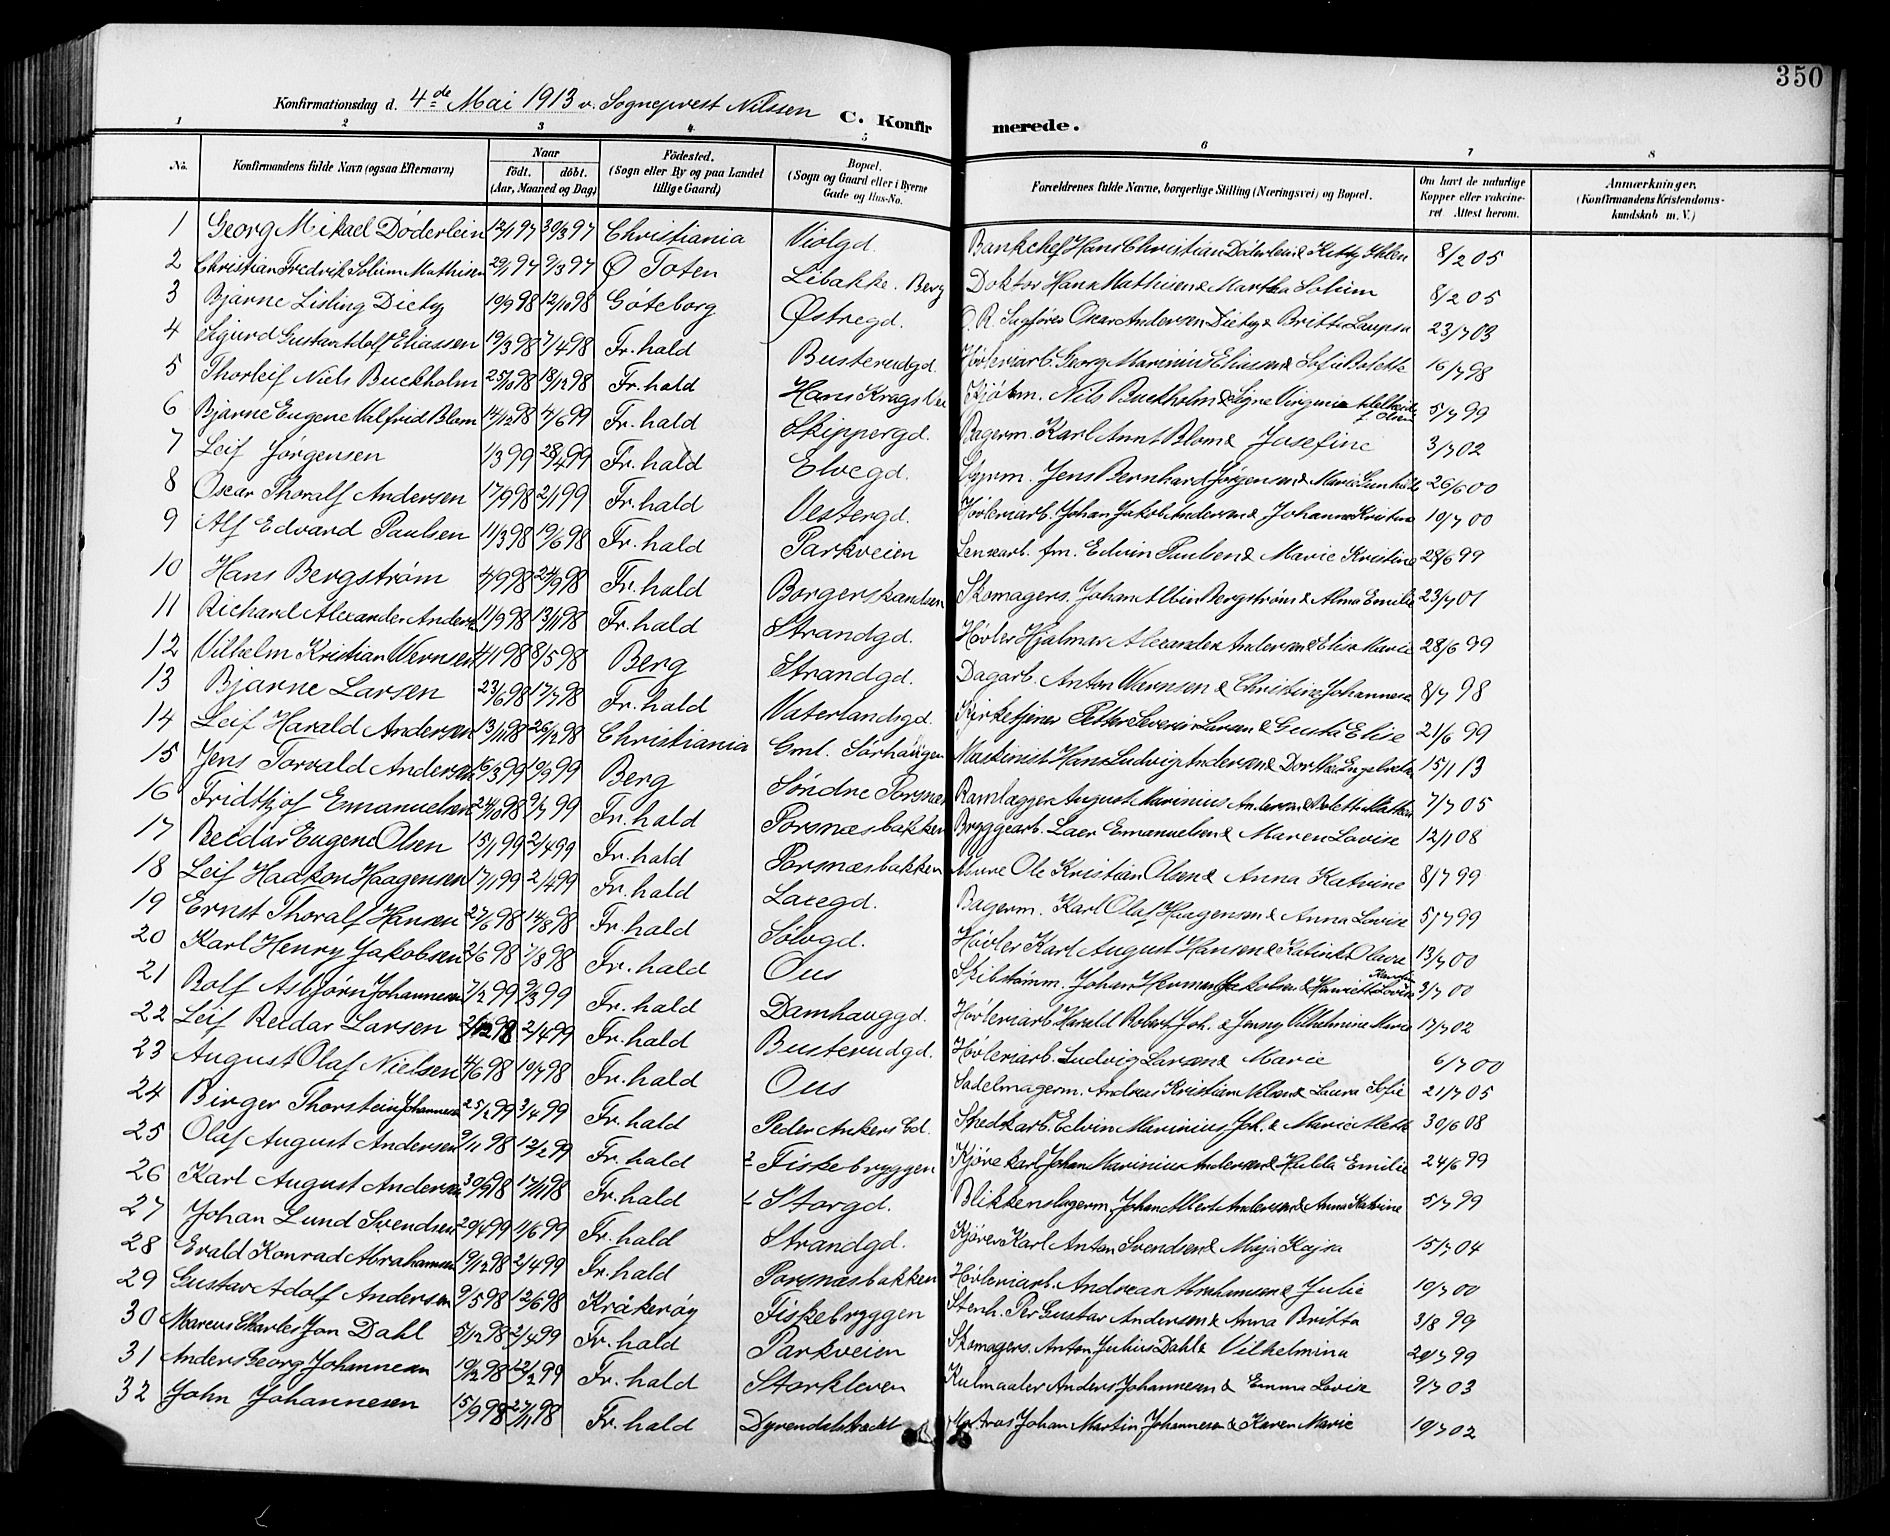 350
Konfirmationsdag d. 4de Mai 1913 v. Sogneprest Nilssen C. Konfirmerede.
1 2 3 4 5 6 7 8
No. Konfirmandens fulde Navn (ogsaa Efternavn) Naar födt. döbt. (Aar, Maaned og Dag) Födested. (Sogn eller By og paa Landet tillige Gaard) Bopæl. (Sogn og Gaard eller i Byerne Gade og Hus-No. Forældrenes fulde Navne, borgerlige Stilling (Næringsvei) og Bopæl. Om havt de naturlige Kopper eller vakcineret. Attest herom. Anmærkninger. (Konfirmandens Kristendomskundskab m. V.)
1 Georg Mikael Døderlein 12/1 97 30/3 97 Christiania Violgd. Bankchef Hans Christian Døderlein & Kitty Ihlen 8/2 05
2 Christian Fredrik Solum Mathisen 29/1 97 9/3 97 Ø Toten Libakke. Berg Doktor Hans Mathisen & Martha Solum 8/2 05
3 Bjarne Lisling Dietz 19/9 98 12/10 98 Göteborg Østregd. O.R. Sagfører Oscar Andersen & Britta 23/7 03
4 Sigurd Gustav Adolf Eliassen 19/3 98 7/4 98 Fr. hald Busterudgd. Høvleriarb. Georg Marinius Eliasen & Sofie Bolette 16/7 98
5 Thorleif Niels Buckholm 25/10 98 18/12 98 Fr. hald Hans Krags Vei Nils Buckholm & Signe Virginie 5/7 99
6 Bjarne Eugene Valfrid Blom 14/12 98 4/6 99 Fr. hald Skippergd. Bagerm. Karl Arnt Blom & Josefine 3/7 02
7 Leif Jørgensen 1/3 99 28/4 99 Fr. hald Elvegd. Styrm. Jens Bernhard Jørgensen & Marie Gunhilde 26/6 00
8 Oscar Thoralf Andersen 17/9 98 2/1 99 Fr. hald Vestergd. Høvleriarb. Johan Jakob Andersen & Johanne Kristine 19/7 00
9 Alf Edvard Paulsen 11/3 98 19/6 98 Fr. hald Parkveien Lensearb. fm. Edvin Paulsen & Marie Kristine 28/6 99
10 Hans Bergstrøm 4/9 98 24/9 98 Fr. hald Borgerskandsen Skomagers. Johan Albin Bergstrøm & Alma Emilie 23/7 01
11 Richard Alexander Anders. 11/9 98 13/11 98 Fr. hald Strandgd. Høvler Hjalmar Alexander Andersen & Elise Marie 28/6 99
12 Vilhelm Kristian Wernsen 4/1 98 8/5 98 Berg Strandgd. Dagarb. Anton Wernsen & Christine Johannesen 8/7 98
13 Bjarne Larsen 23/6 98 17/7 98 Fr. hald Vaterlandsgd. Kirketjener Petter Severin Larsen & Gusta Elise 21/6 99
14 Leif Harald Andersen 13/11 98 26/12 98 Christiania Gml. Sørhaugen Maskinist Hans Ludvig Andersen & Dorthea 15/1 13
15 Jens Torvald Andersen 16/3 99 10/9 99 Berg Søndre Porsnæs Ramlægger August Marinius Andersen & Bolette Mathea 7/7 05
16 Fridthjof Emanuelsen 24/10 98 9/7 99 Fr. hald Porsnæsbakken Bryggearb. Lars Emanuelsen & Maren Lovise 12/1 08
17 Reidar Eugene Olsen 15/1 99 2/4 99 Fr. hald Porsnæsbakken Ole Kristian Olsen & Anna Katrine 8/7 99
18 Leif Haakon Haagensen 17/1 99 2/4 99 Fr. hald Lacegd. Bagerm. Karl Olaf Haagensen & Anna Lovise 5/7 99
19 Ernst Thoralf Hansen 27/6 98 14/8 98 Fr. hald Sølvgd. Høvler Karl August Hansen & Katinka Olava 13/7 00
20 Karl Henry Jakobsen 2/6 98 7/8 98 Fr. hald Ous Skibstømm. Johan Herman Jakobsen & Henriette Lovise 3/7 00
21 Rolf Asbjørn Johannesen 7/2 99 9/3 99 Fr. hald Damhauggd. Høvleriarb. Harald Robert Joh. & Jenny Vilhelmine Marie 17/7 02
22 Leif Reidar Larsen 12 98 2/4 99 Fr. hald Busterudgd. Høvleriarb. Ludvig Larsen & Marie 6/7 00
23 August Olaf Nielsen 4/6 98 10/7 98 Fr. hald Ous Sadelmagerm. Andreas Kristian Nielsen & Laura Sofie 21/7 05
24 Birger Thorstein Johannesen 25/2 99 3/4 99 Fr. hald Peder Ankers Gd. Edvin Marinius Joh. & Marie Alette 30/6 08
25 Olaf August Andersen 9/11 98 12/2 99 Fr. hald Fiskebryggen Kjørekarl Johan Marinius Andersen & Hulda Emilie 24/6 99
26 Karl August Andersen 30/9 98 17/11 98 Fr. hald Storgd. Blikkenslagerm. Johan Albert Andersen & Anna Katrine 5/7 99
27 Johan Lund Svendsen 29/4 99 11/6 99 Fr. hald Strandgd. Kjører Karl Anton Svendsen & Maja Kajsa 15/7 04
28 Evald Konrad Abrahamsen 19/12 98 2/4 99 Fr. hald Porsnæsbakken Høvleriarb. Andreas Abrahamsen & Julie 19/7 00
29 Gustav Adolf Andersen 9/5 98 12/6 98 Kråkerøy Fiskebryggen Stenh. Per Gustav Andersen & Anna Britta 3/8 99
30 Marcus Charles Jon Dahl 5/12 98 2/4 99 Fr. hald Parkveien Skomagers. Anton Julius Dahl & Vilhelmina 20/7 99
31 Anders Georg Johannesen 10/12 98 22/2 99 Fr. hald Storkleven Kulmaaler Anders Johannesen & Emma Lovise 9/7 03
32 John Johannesen 15/9 98 27/11 98 Fr. hald Dyrendalstrædet Johan Martin Johannesen & Karen Marie 19/7 02